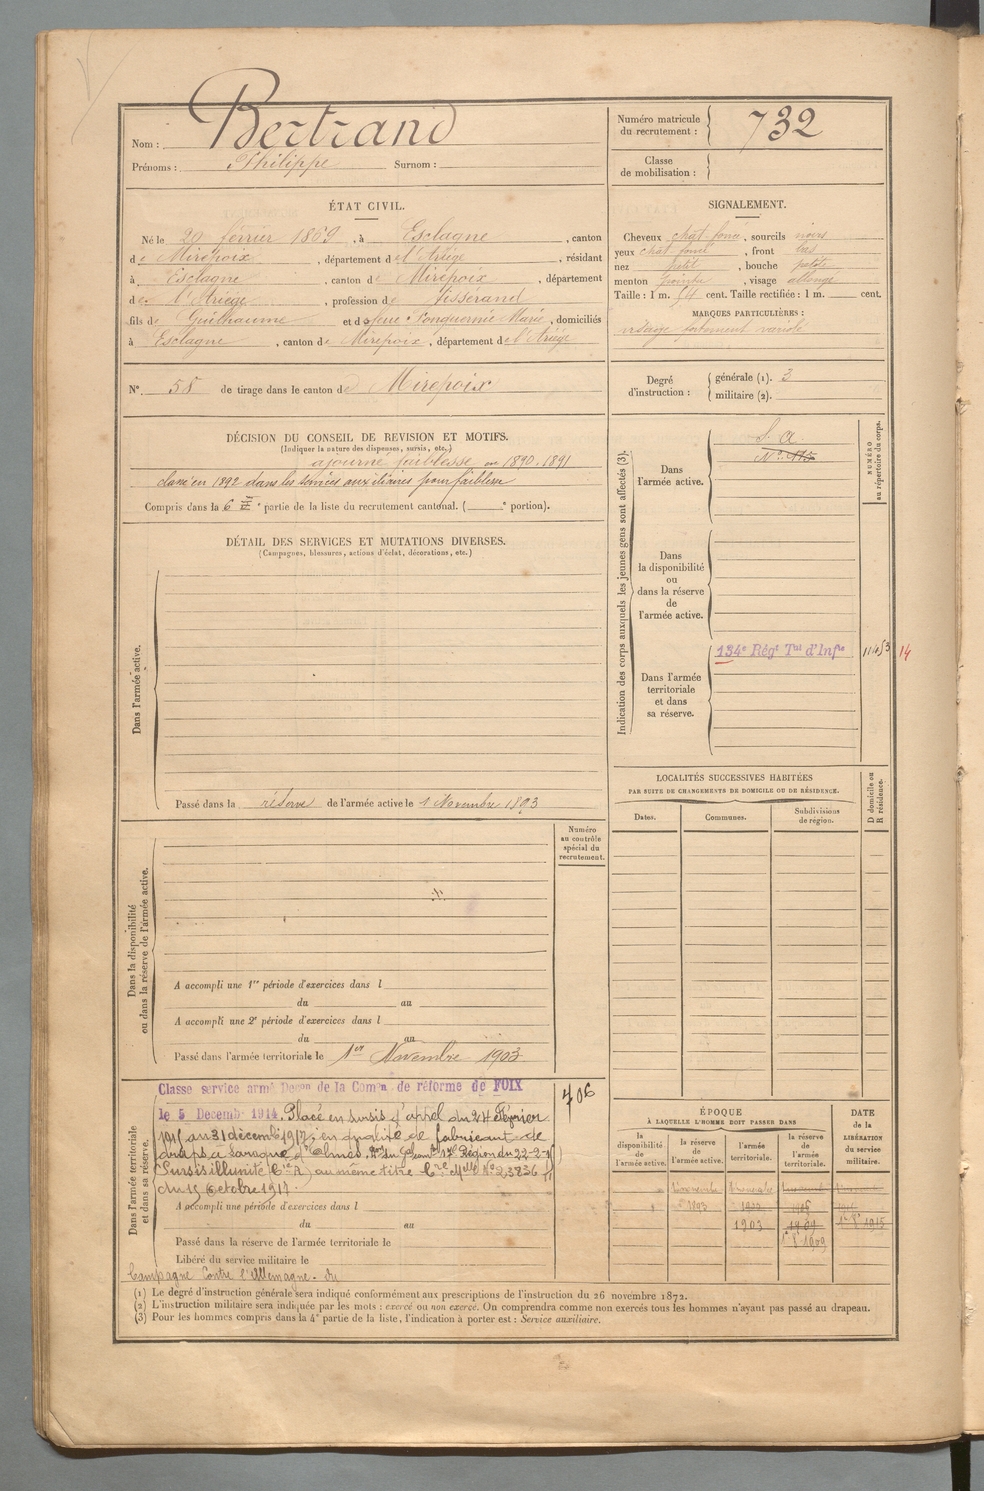 Nom : Bertrand
Prénoms : Philippe Surnom :
Numéro matricule du recrutement : 732
Classe de mobilisation :
ÉTAT CIVIL.
Né le 20 février 1869, à Esclagne, canton
de Mirepoix, département de l'Ariège, résidant
à Esclagne, canton de Mirepoix, département
de l'Ariège, profession de Tisserand
fils de Guilhaume et de feue Marie, domiciliés
à Esclagne, canton de Mirepoix, département de l'Ariège
N° 58 de tirage dans le canton de Mirepoix
SIGNALEMENT.
Cheveux chat. foncé, sourcils noirs
yeux chat foncé, front bas
nez petit, bouche petite
menton pointu, visage allongé
Taille : 1 m. 54 cent. Taille rectifiée : 1 m. cent.
MARQUES PARTICULIÈRES :
visage fortement variolé
Degré d'instruction : générale (1). 3
militaire (2).
DÉCISION DU CONSEIL DE REVISION ET MOTIFS.
(Indiquer la nature des dispenses, sursis, etc.)
ajourné faiblesse en 1890, 1891
classé en 1892 dans les services auxiliaires pour faiblesse
Compris dans la 6 e partie de la liste du recrutement cantonal. ( e portion).
DÉTAIL DES SERVICES ET MUTATIONS DIVERSES.
(Campagnes, blessures, actions d'éclat, décorations, etc.)
Dans l'armée active.
Passé dans la réserve de l'armée active le 1 Novembre 1893
Indication des corps auxquels les jeunes gens sont affectés (3).
NUMÉRO au répertoire du corps.
Dans l'armée active.
S. A.
N° 115
Dans la disponibilité ou dans la réserve de l'armée active.
Dans l'armée territoriale et dans sa réserve.
134e Régt Tal d'Infie
11453 14
LOCALITÉS SUCCESSIVES HABITÉES
PAR SUITE DE CHANGEMENTS DE DOMICILE OU DE RÉSIDENCE.
D domicile ou R résidence.
Dates. Communes. Subdivisions de région.
Numéro au contrôle spécial du recrutement.
Dans la disponibilité ou dans la réserve de l'armée active.
A accompli une 1re période d'exercices dans l
du au
A accompli une 2e période d'exercices dans l
du au
Passé dans l'armée territoriale le 1er Novembre 1903
Dans l'armée territoriale et dans sa réserve.
Classe service armé Décon de la Comon de réforme de FOIX
le 5 Decemb 1914. Placé en sursis d'appel du 24 Février
1915 au 31 décemb 1917, en qualité de fabricant de
draps à laroque d'Olmes. 17e Région du 22-2-
Sursis illimité au même titre N° 23836
du 15 octobre 1917.
406
A accompli une période d'exercices dans l
du au
Passé dans la réserve de l'armée territoriale le
Libéré du service militaire le
Campagne contre l'Allemagne. du
ÉPOQUE
À LAQUELLE L'HOMME DOIT PASSER DANS
la disponibilité de l'armée active. la réserve de l'armée active. l'armée territoriale. la réserve de l'armée territoriale.
DATE de la LIBÉRATION du service militaire.
1 novembre 1 novembre
1893
1903 1909 1er 8e 1915
1er 8e 1909
(1) Le degré d'instruction générale sera indiqué conformément aux prescriptions de l'instruction du 26 novembre 1872.
(2) L'instruction militaire sera indiquée par les mots : exercé ou non exercé. On comprendra comme non exercés tous les hommes n'ayant pas passé au drapeau.
(3) Pour les hommes compris dans la 4e partie de la liste, l'indication à porter est : Service auxiliaire.